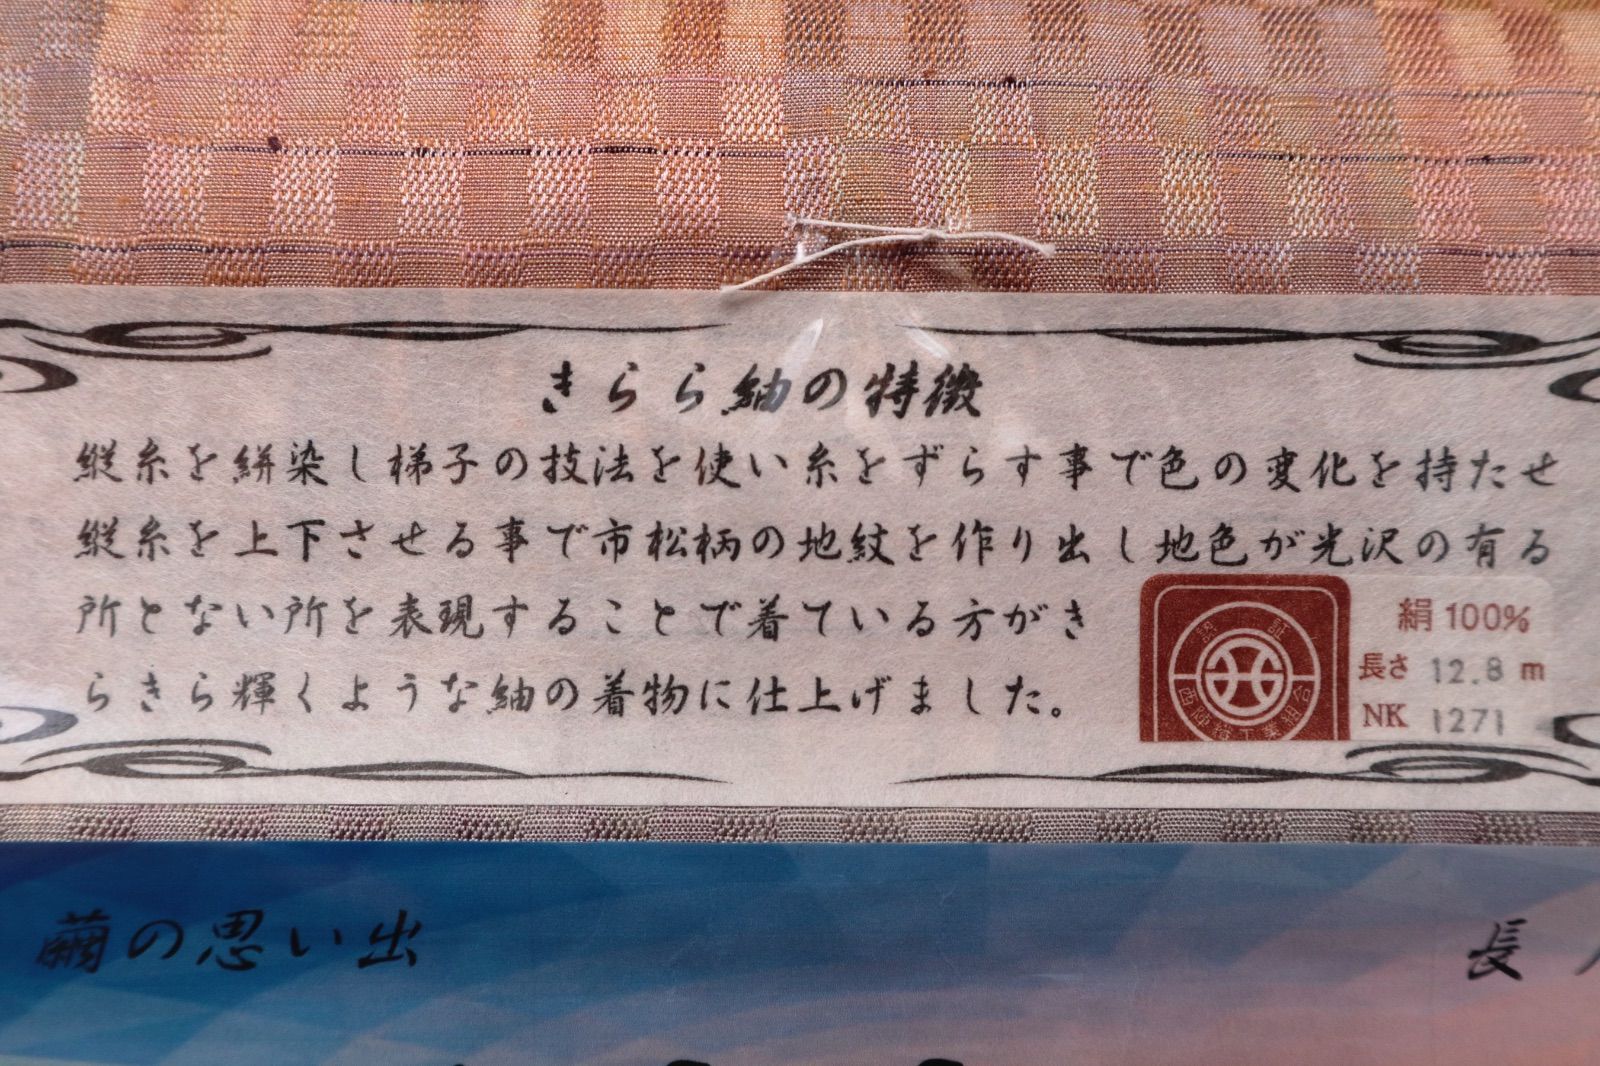 きらら紬の特徴
縦糸を絣染し梯子の技法を使い糸をずらす事で色の変化を持たせ
縦糸を上下させる事で市松柄の地紋を作り出し地色が光沢の有る
所とない所を表現することで着ている方がき
らきら輝くような紬の着物に仕上げました。
認証
西陣織工業組合
絹 100%
長さ 12.8 m
NK 1271
繭の思い出
長